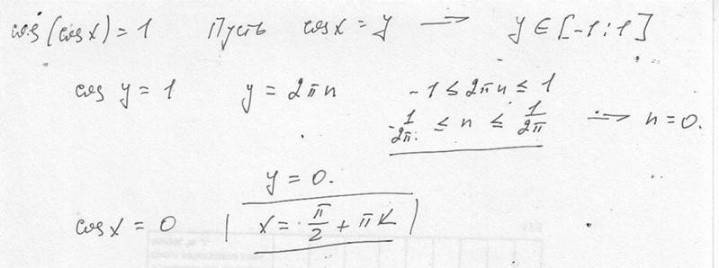 cos(cosx)=1 Пусть cosx=y → y∈[-1;1]
cos y = 1 y = 2πn -1≤2πn≤1
-1/2π ≤ n ≤ 1/2π ⇒ n=0.
y=0.
cosx=0 | x=π/2+πk |